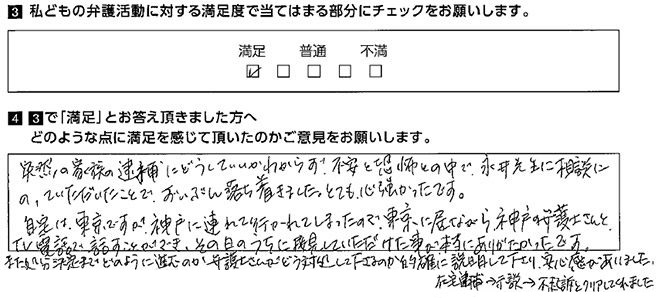 3 私どもの弁護活動に対する満足度で当てはまる部分にチェックをお願いします。
満足 普通 不満
☑ □ □ □ □
4 3で「満足」とお答え頂きました方へ
どのような点に満足を感じて頂いたのかご意見をお願いします。
突然の家族の逮捕にどうしていいかわからず、不安と恐怖との中で、永井先生に相談に
のっていただいたことで、ずいぶん落ち着きました。とても心強かったです。
自宅は、東京ですが神戸に連れて行かれてしまったので、東京に居ながら神戸の弁護士さんと
TV電話で話すことができ、その日のうちに接見していただけた事が本当にありがたかったです。
また処分決定までどのように進むのか弁護士さんがどう対処して下さるのか的確に説明して下さり、安心感がありました。
在宅逮捕→示談→不起訴とクリアしてくれました